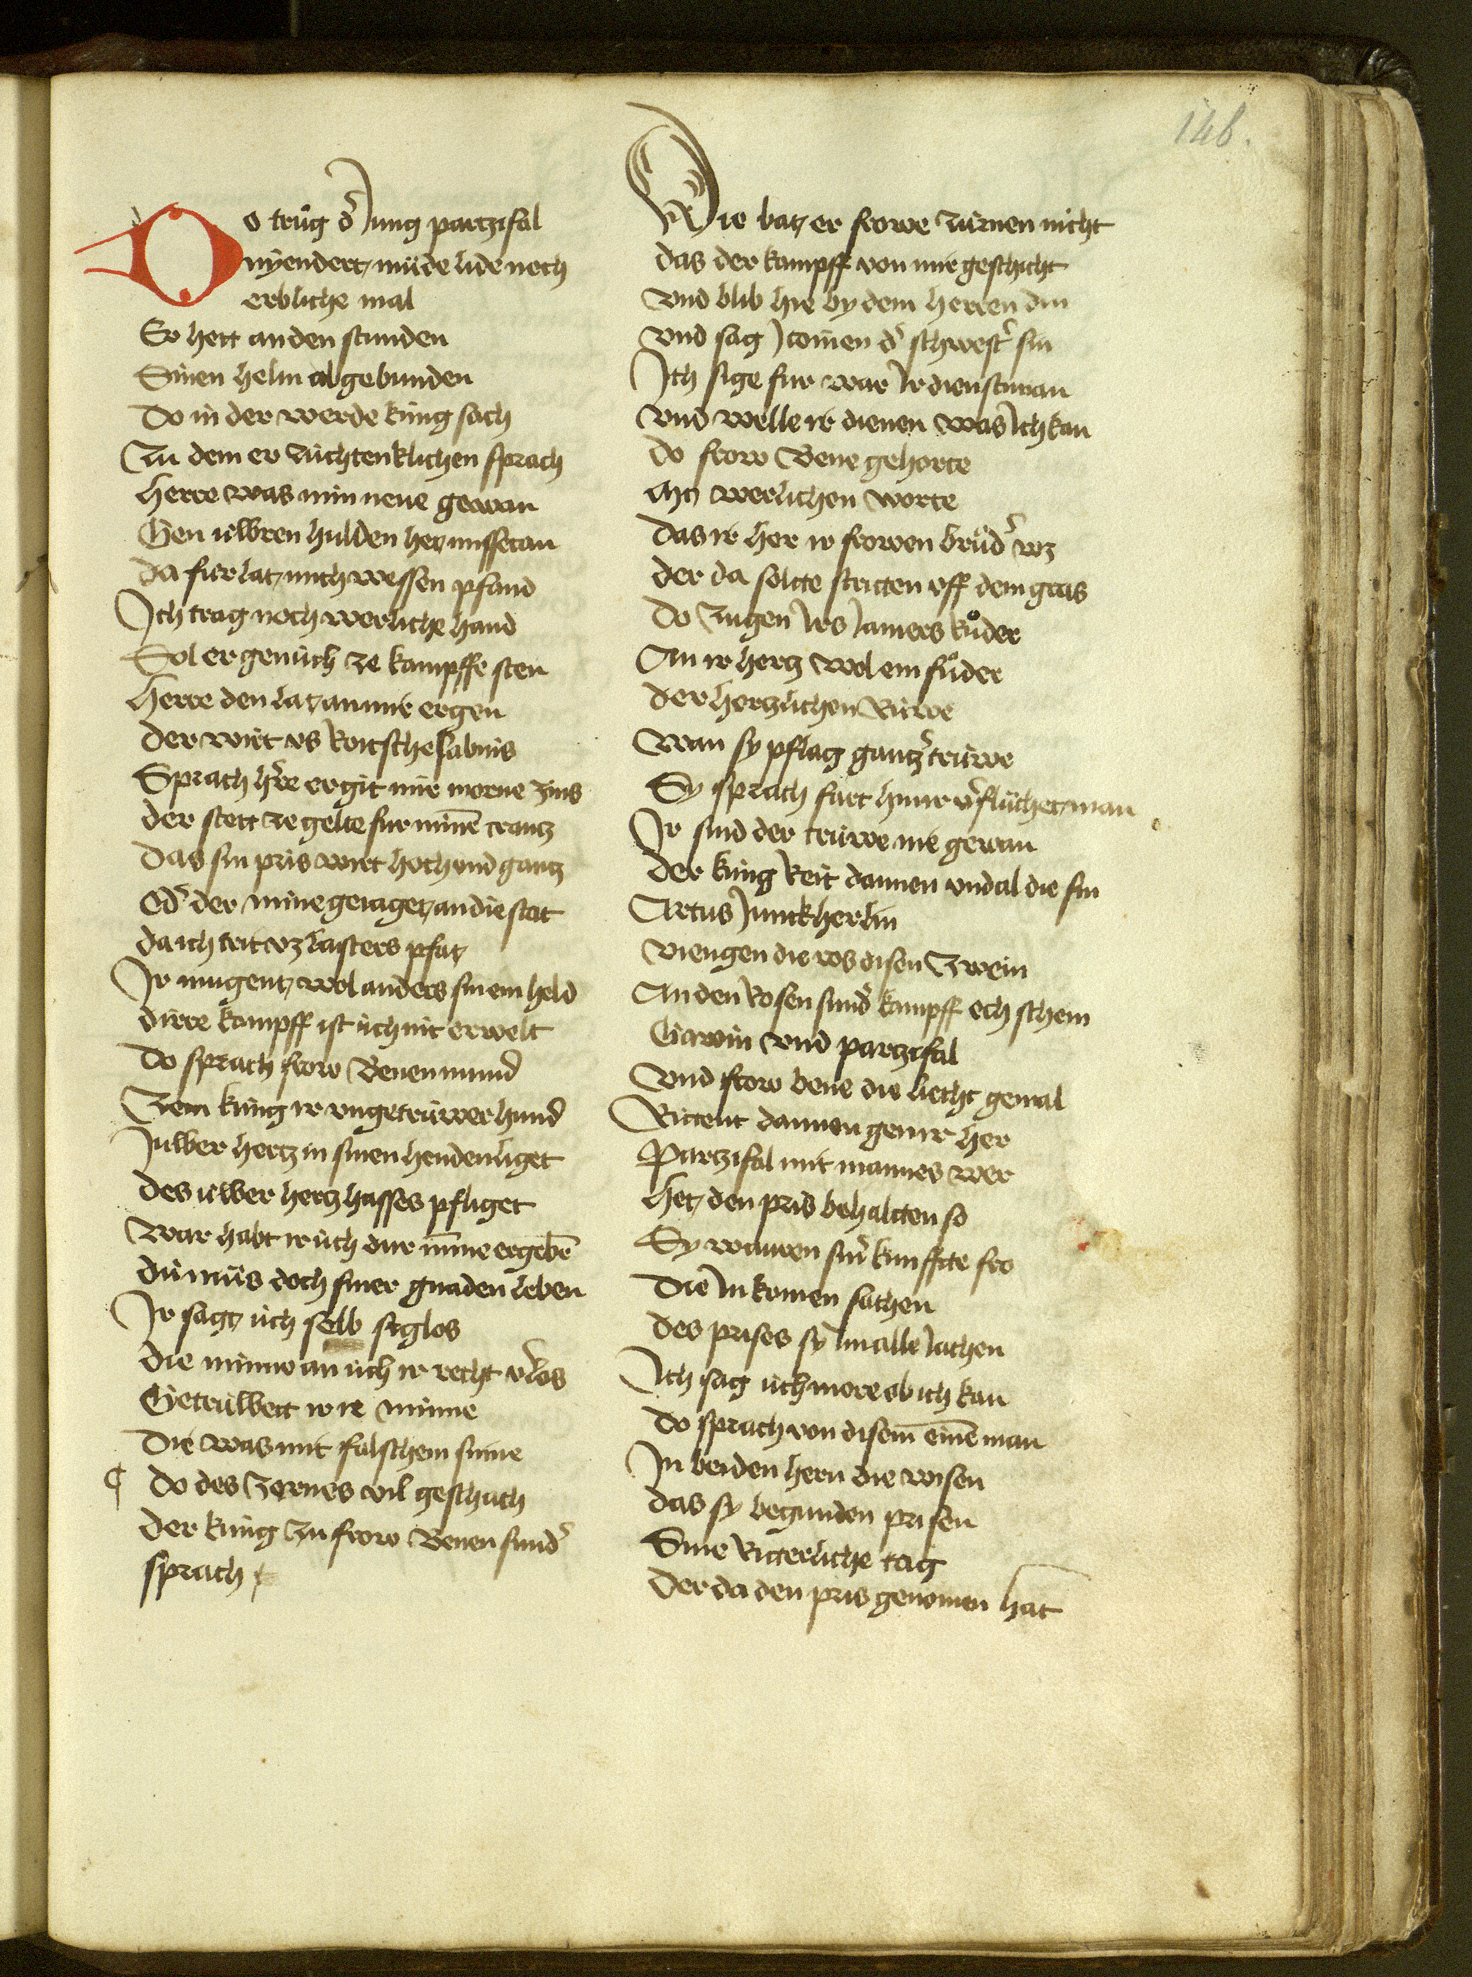 146.
Do trůg d' Jung partzifal
nyendert müde lide noch
erbliche mal
Er hett an den stunden
Sinen helm abgebunden
Do in der werde küng sach
Zu dem er züchtenklichen sprach
Herre was min neue gewan
Gen üwren hulden het missetan
da fur lat mich wessen pfand
Ich trag noch werliche hand
Sol er genüch ze kampffe sten
Herre den lat an mir ergen
der wirt vs Roitschesabins
Sprach h're er git mir morne zins
der stett ze gelte fur minē crantz
Das sin pris wirt hoch vnd gantz
Od' der mine geiaget an die stat
da ich trit vz lasters pfat
Ir mugent wol anders sin ein held
dirre kampff ist üch nit erwelt
Do sprach frow Benen mund
Zem küng ir vngetrüwer hund
Juwer hertz in sinen henden liget
des üwer hertz hasses pfliget
War habt ir üch dur mīne ergebē
du mus doch siner gnaden leben
Ir sagt üch selb siglos
die minne an üch ir recht v'los
Getruwett ir ie minne
Die was mit falschem sinne
¶ Do des zornes vil geschach
der küng zu frow Benen sund'
sprach
Die bat er frowe zürnen nicht
das der kampff von mir geschicht
vnd blib hie by dem herren din
vnd sag Jtonien d' schwest' sin
Ich sige fur war Ir dienstman
vnd welle ir dienen was Ich kan
do frow Bene gehorte
Mit werlichen worte
Das ir her ir frowen brüd' wz
der da soltte stritten vff dem gras
do zugen Irs Jamers růder
An ir hertz wol ein fůder
der hertzlichen Rüwe
Wan sy pflag gantz' trüwe
Sy sprach fart hin ir v'flüchet man
Ir sind der trüwe nie gewan
der küng Reit dannen vnd al die sin
Artus Junckherlin
viengen die ros disen zwein
An den Rosen sund' kampff och schein
Gawin vnd partzifal
Vnd frow bene die liecht gemal
Rittent dannen gen ir her
Partzifal mit mannes wer
Het den pris behaltten so
Sy waren sin' kunffte fro
Die In komen sachen
des prises sy Im alle Jachen
Ich sag üch more ob ich kan
do sprach von disem einē man
In beiden hern die wisen
das sy begunden prisen
Sine Ritterliche tag
Der da den pris genomen hat